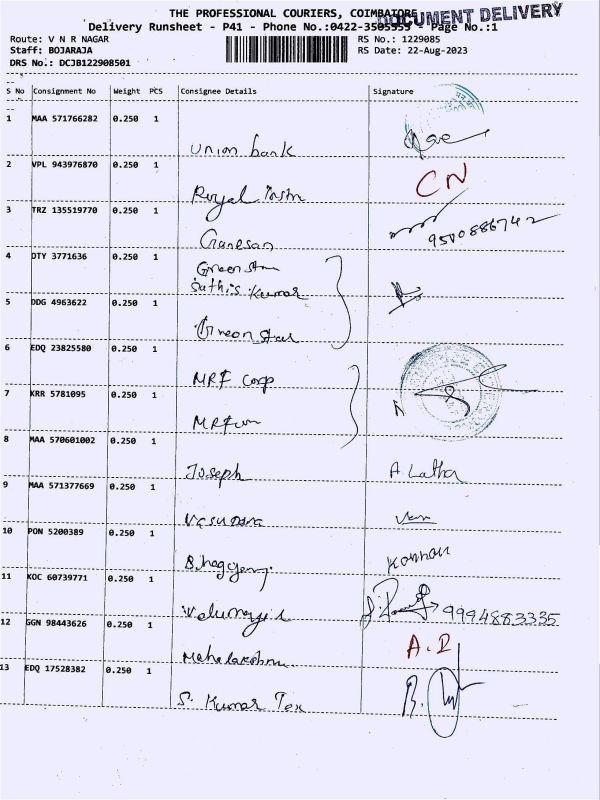 THE PROFESSIONAL COURIERS, COIMBATORE
DOCUMENT DELIVERY
Delivery Runsheet - P41 - Phone No.:0422-3505555 - Page No.:1
Route: V N R NAGAR
RS No.: 1229085
Staff: BOJARAJA
RS Date: 22-Aug-2023
DRS No.: DCJB122908501
S No Consignment No Weight PCS Consignee Details Signature
1 MAA 571766282 0.250 1
Union bank
2 VPL 943976870 0.250 1
Royal CN
3 TRZ 135519770 0.250 1
Ganesan 9500886742
4 DTY 3771636 0.250 1
Green Star
Sathis Kumar
5 DDG 4963622 0.250 1
Green Star
6 EDQ 23825580 0.250 1
MRF Corp
7 KRR 5781095 0.250 1
8 MAA 570601002 0.250 1
Joseph A. Latha
9 MAA 571377669 0.250 1
Vasudara
10 PON 5200389 0.250 1
Kannan
11 KOC 60739771 0.250 1
9994883335
12 GGN 98443626 0.250 1
Mahalakshmi
13 EDQ 17528382 0.250 1
S. Kumar Tex